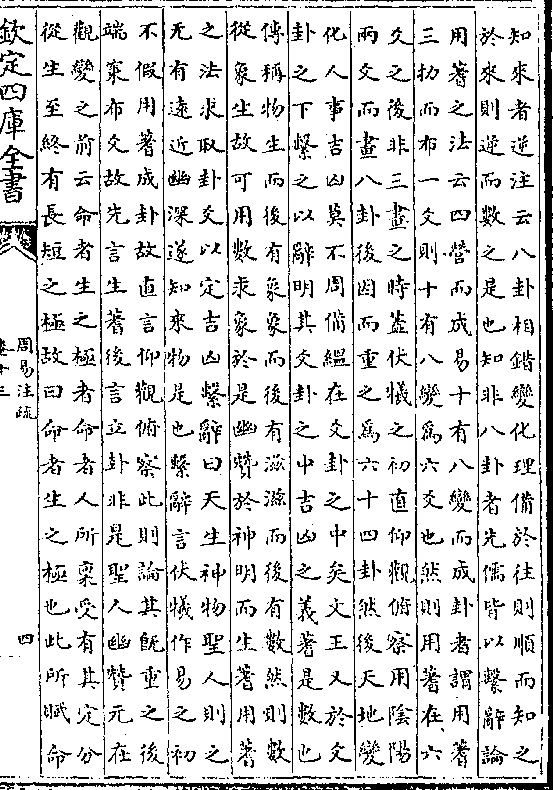 知來者逆注云八卦相錯變化理備於往則順而知之
於來則逆而數之是也知非八卦者先儒皆以繫辭論
用蓍之法云四營而成易十有八變而成卦者謂用蓍
三扐而布一爻則十有八變爲六爻也然則用蓍在六
爻之後非三畫之時蓋伏犧之初直仰觀俯察用陰陽
兩爻而畫八卦後因而重之爲六十四卦然後天地變
化人事吉凶莫不周備縕在爻卦之中矣文王又於爻
卦之下繫之以辭明其爻卦之中吉凶之義蓍是數也
傳稱物生而後有象象而後有滋滋而後有數然則數
從象生故可用數求象於是幽贊於神明而生蓍用蓍
之法求取卦爻以定吉凶繫辭曰天生神物聖人則之
无有遠近幽深遂知來物是也繫辭言伏犧作易之初
不假用蓍成卦故直言仰觀俯察此則論其旣重之後
端策布爻故先言生蓍後言立卦非是聖人幽贊元在
觀變之前云命者生之極者命者人所稟受有其定分
從生至終有長短之極故曰命者生之極也此所賦命
欽定四庫全書
周易注疏
卷十三
四